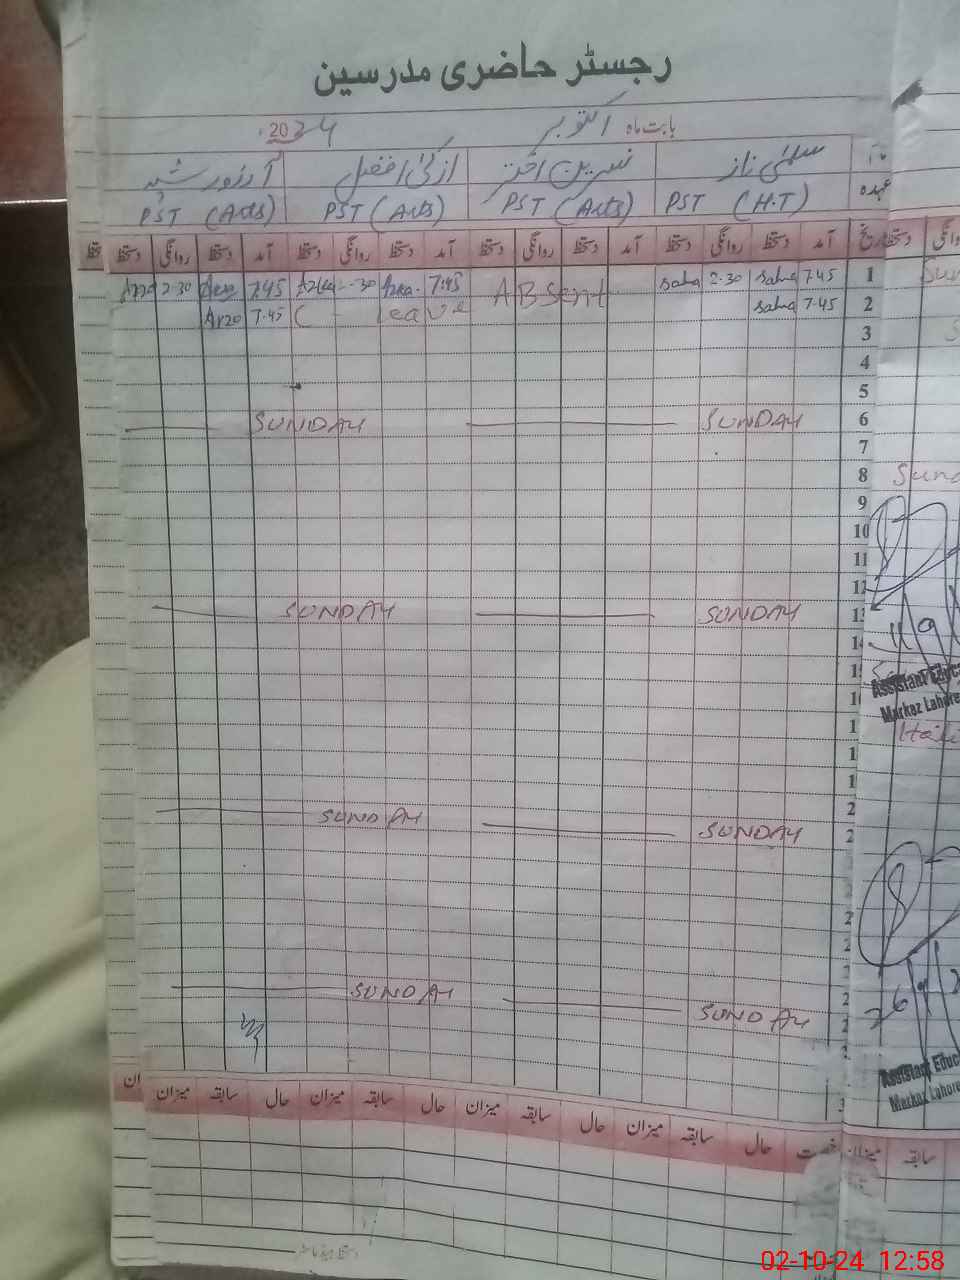 رجسٹر حاضری مدرسین
بابت ماہ اکتوبر 2024ء
نام
سلمیٰ ناز نسرین اختر ازکیٰ افضل آرزو رشید
عہدہ
PST (H.T) PST (Arts) PST (Arts) PST (Arts)
تاریخ آمد دستخط روانگی دستخط آمد دستخط روانگی دستخط آمد دستخط روانگی دستخط آمد دستخط روانگی دستخط
1 7:45 2:30 ABsent 7:45 7:45 2:30
2 7:45 Leave 7:45 Arzo
3
4
5
6 SUNDAY SUNDAY
7
8 Sund
9
10
11
12
13 SUNDAY SUNDAY
14
Assistant Educa
Markaz Lahore
SUNDAY SUNDAY
SUNDAY SUNDAY
Assistant Educ
Markaz Lahore
رخصت حال سابقہ میزان حال سابقہ میزان حال سابقہ میزان حال سابقہ میزان
میزان سابقہ
دستخط ہیڈ ماسٹر
02-10-24 12:58